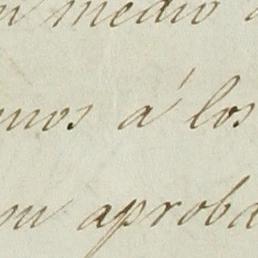 medio
mos á los
su aproba